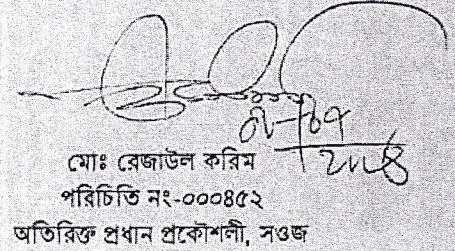 মোঃ রেজাউল করিম
পরিচিতি নং-০০০৪৫২
অতিরিক্ত প্রধান প্রকৌশলী, সওজ